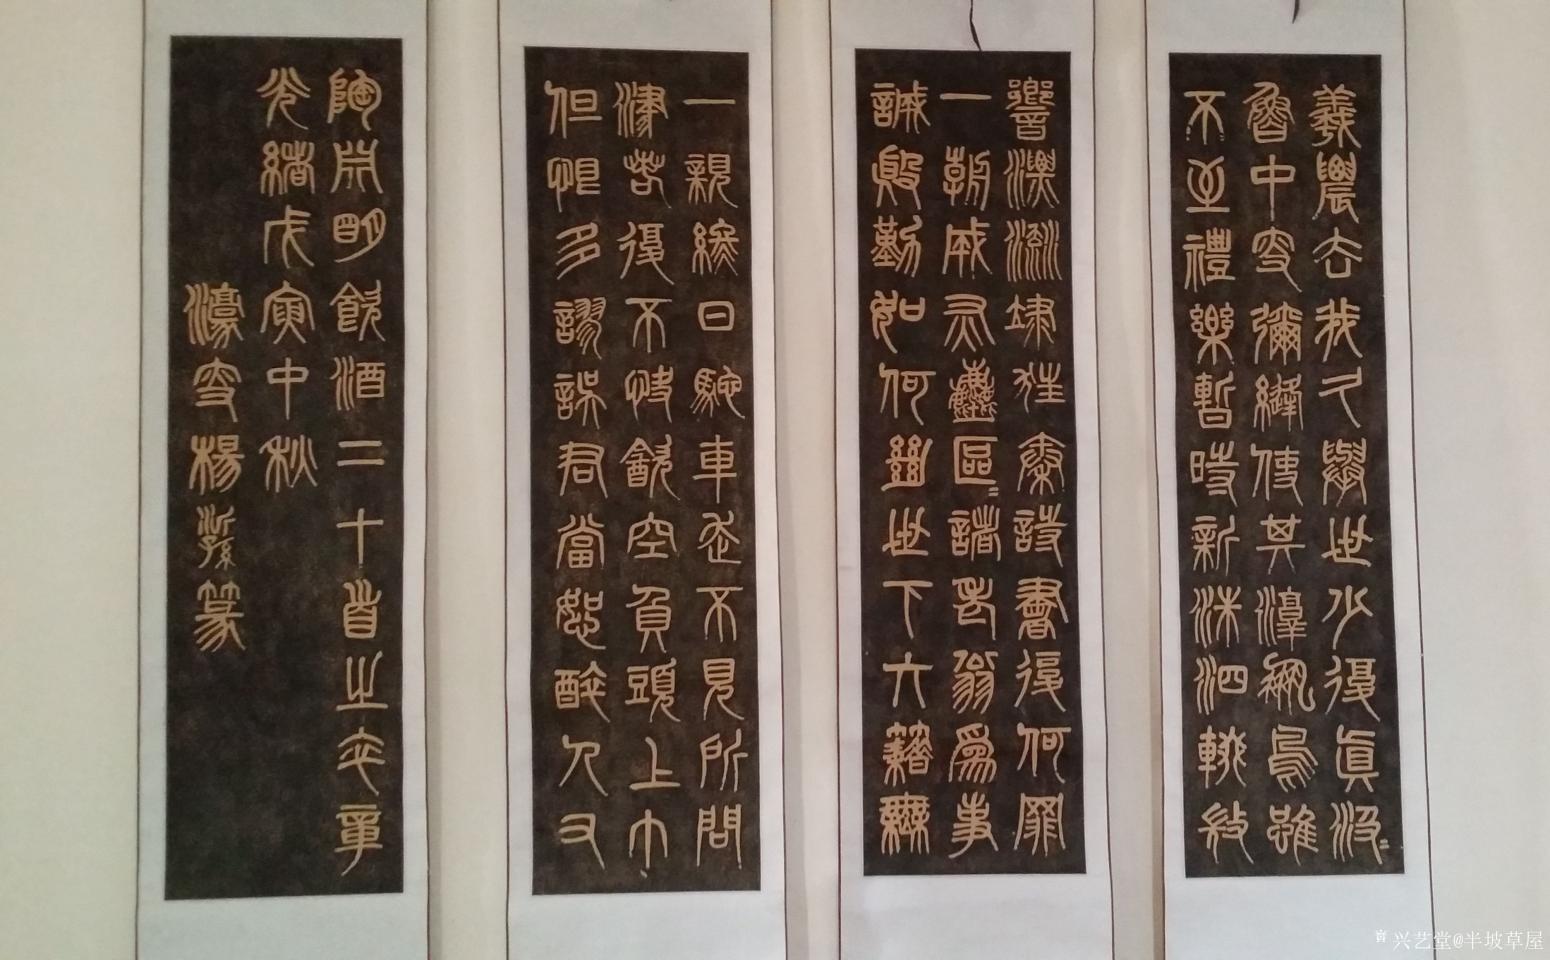 羲農去我久舉世少復真汲=
魯中叟彌縫使其淳鳳鳥雖
不至禮樂暫時新洙泗輟微
響漂流逮狂秦詩書復何罪
一朝成灰塵區=諸老翁為事
誠殷勤如何絕世下六籍無
一親終日馳車走不見所問
津若復不快飲空負頭上巾
但恨多謬誤君當恕醉人又
陶淵明飲酒二十首之卒章
光緒戊寅中秋
濠叟楊沂孫篆
兴艺堂@半坡草屋